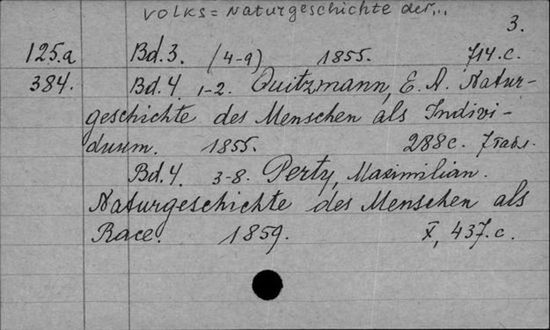 VOLKS=Naturgeschichte der...
3.
125.a Bd.3. (4-9) 1855. 714.c.
384. Bd.4 1-2. Quitzmann, E. A. Natur-
geschichte des Menschen als Indivi-
duum. 1855. 288c. 7 табл.
Bd.4. 3-8. Perty, Maximilian.
Naturgeschichte des Menschen als
Race. 1859. X, 437.c.